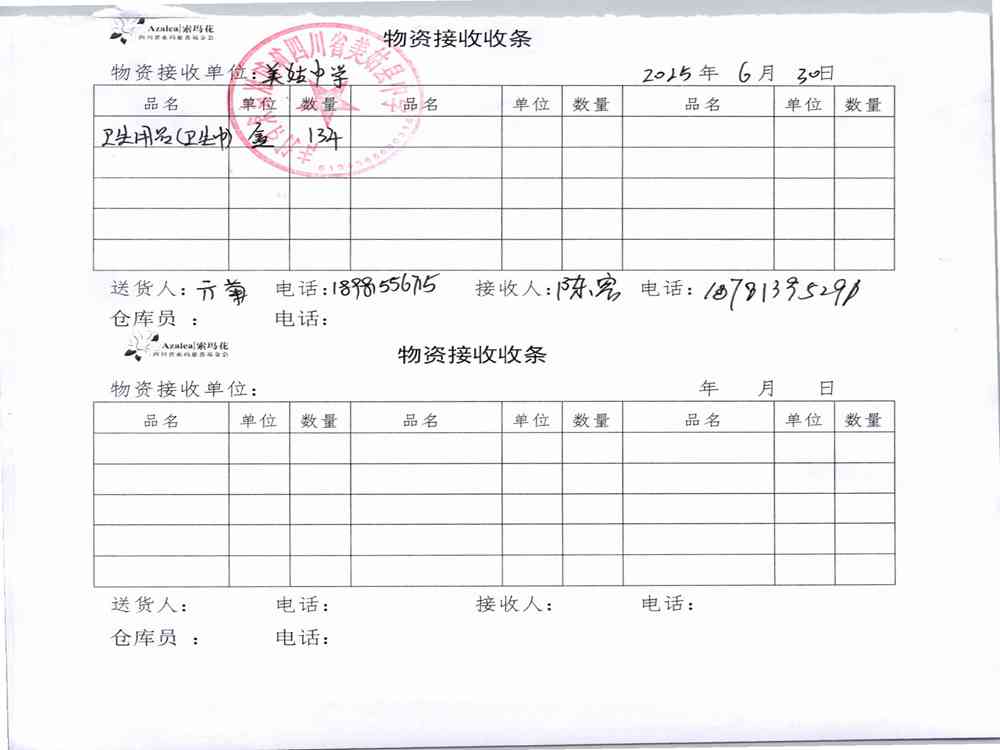 Azalea|索玛花
四川省索玛慈善基金会
物资接收收条
物资接收单位:美姑中学 2025年 6月 30日
品名 单位 数量 品名 单位 数量 品名 单位 数量
卫生用品(卫生巾) 盒 134
送货人: 电话: 接收人:陈 电话:
仓库员 : 电话:
Azalea|索玛花
四川省索玛慈善基金会
物资接收收条
物资接收单位: 年 月 日
品名 单位 数量 品名 单位 数量 品名 单位 数量
送货人: 电话: 接收人: 电话:
仓库员 : 电话:
四川省美姑县中学